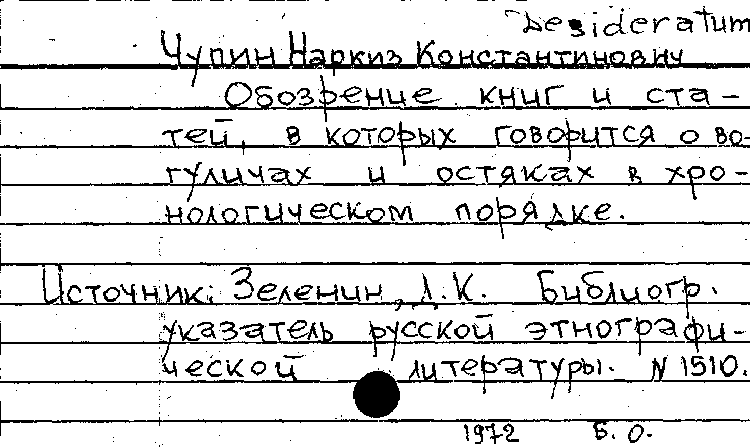 Desideratum
Чупин Наркиз Константинович
Обозрение книг и ста-
тей, в которых говорится о во-
гуличах и остяках в хро-
нологическом порядке.
Источник: Зеленин, Д.К. Библиогр.
указатель русской этнографи-
ческой литературы. N 1510.
1972 Б. О.